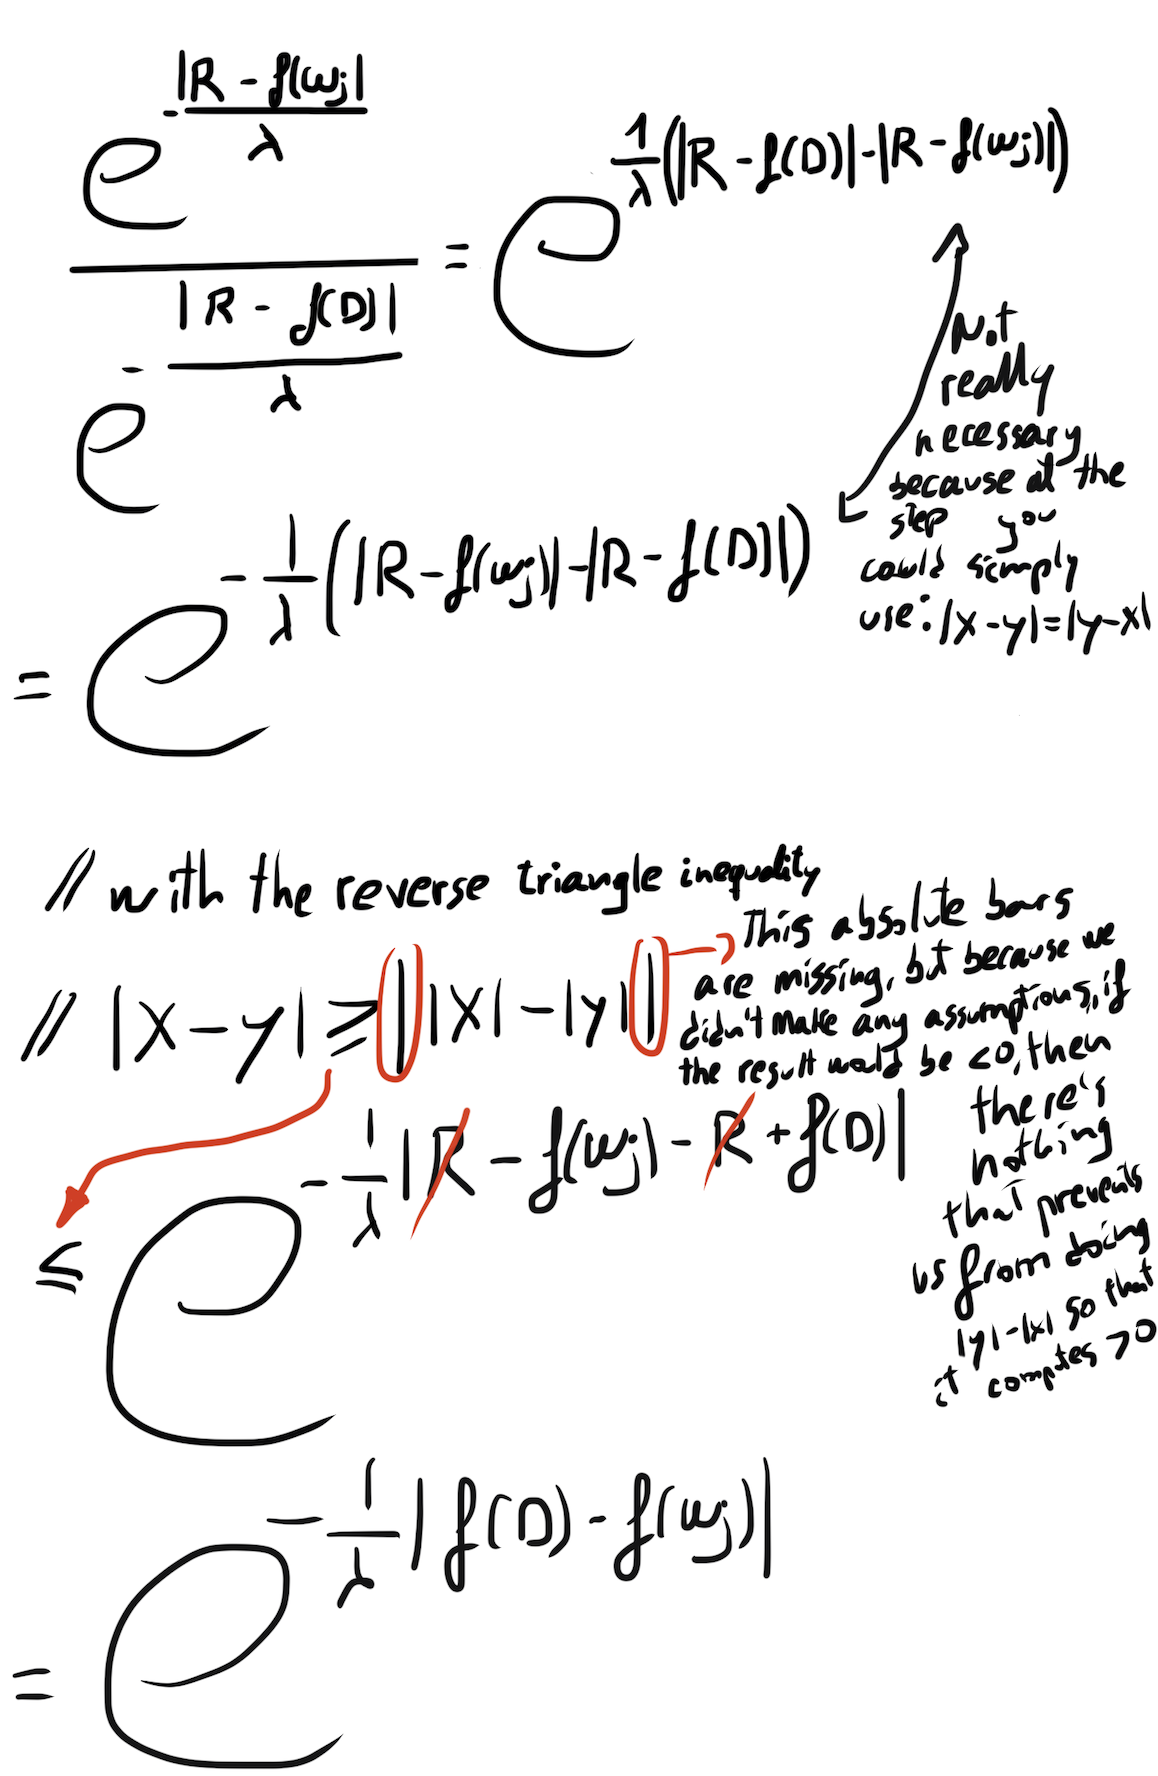 e^{-\frac{|R - f(w_j|}{λ}} / e^{-\frac{|R - f(D)|}{λ}} = e^{\frac{1}{λ}(|R - f(D)| - |R - f(w_j)|)}
Not
really
necessary
because at the
step you
could simply
use: |x-y|=|y-x|
= e^{-\frac{1}{λ}(|R - f(w_j)| - |R - f(D)|)}
// with the reverse triangle inequality
// |x - y| ≥ ||x| - |y||
This absolute bars
are missing, but because we
didn't make any assumptions, if
the result would be <0, then
there's
nothing
that prevents
us from doing
|y|-|x| so that
it computes >0
≤ e^{-\frac{1}{λ}|R - f(w_j) - R + f(D)|}
= e^{-\frac{1}{λ}|f(D) - f(w_j)|}